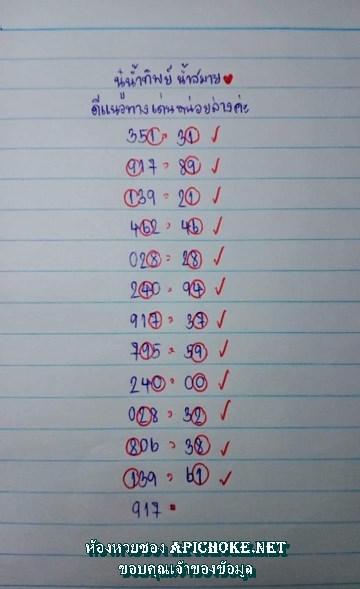 นู๋น้ำทิพย์ น้ำสบาย ♥
ดีแนวทางเด่นหน่อยล่างค่ะ
351 = 31 ✓
917 = 89 ✓
139 = 21 ✓
462 = 46 ✓
028 = 28 ✓
240 = 94 ✓
917 = 37 ✓
795 = 59 ✓
240 = 00 ✓
028 = 32 ✓
806 = 38 ✓
139 = 61 ✓
917 =
ห้องหวยซอง APICHOKE.NET
ขอบคุณเจ้าของข้อมูล